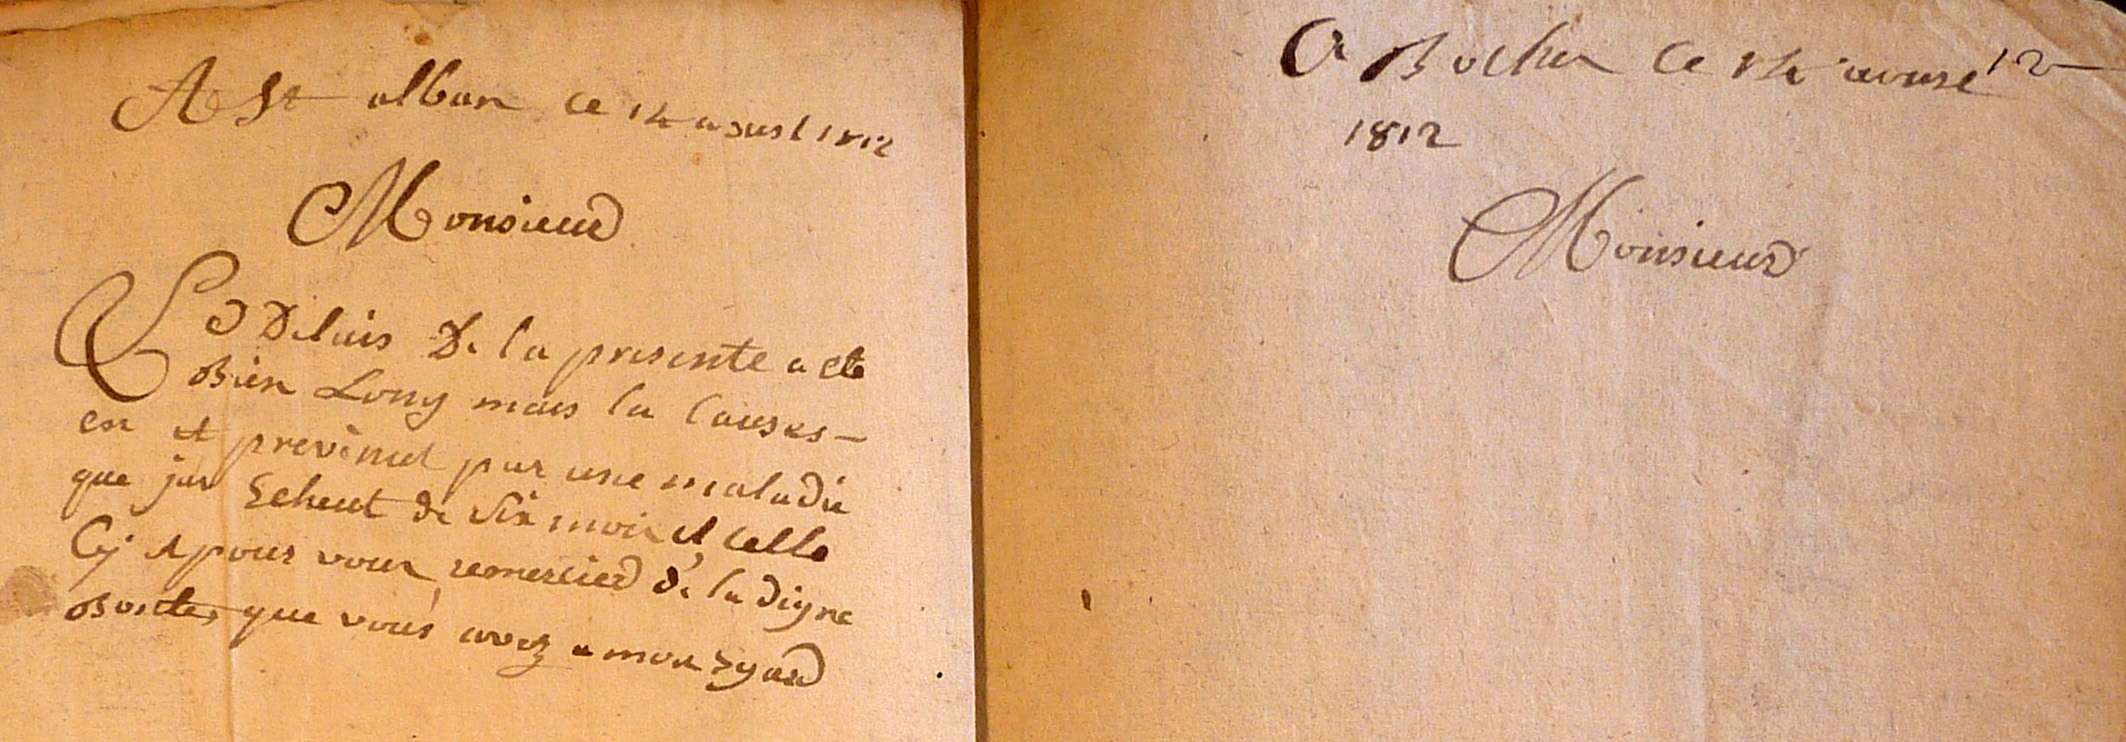 A St alban ce 14 aoust 1812
Monsieur
Le Delais De la presente a ete
Bien Long mais la Causes
en et prevenut par une maladie
que jai Echeut de six mois et celle
Cy et pour vous remercier de la digne
Bontes que vous avez a mon Egard
A Bocher Ce 14 12
1812
Monsieur